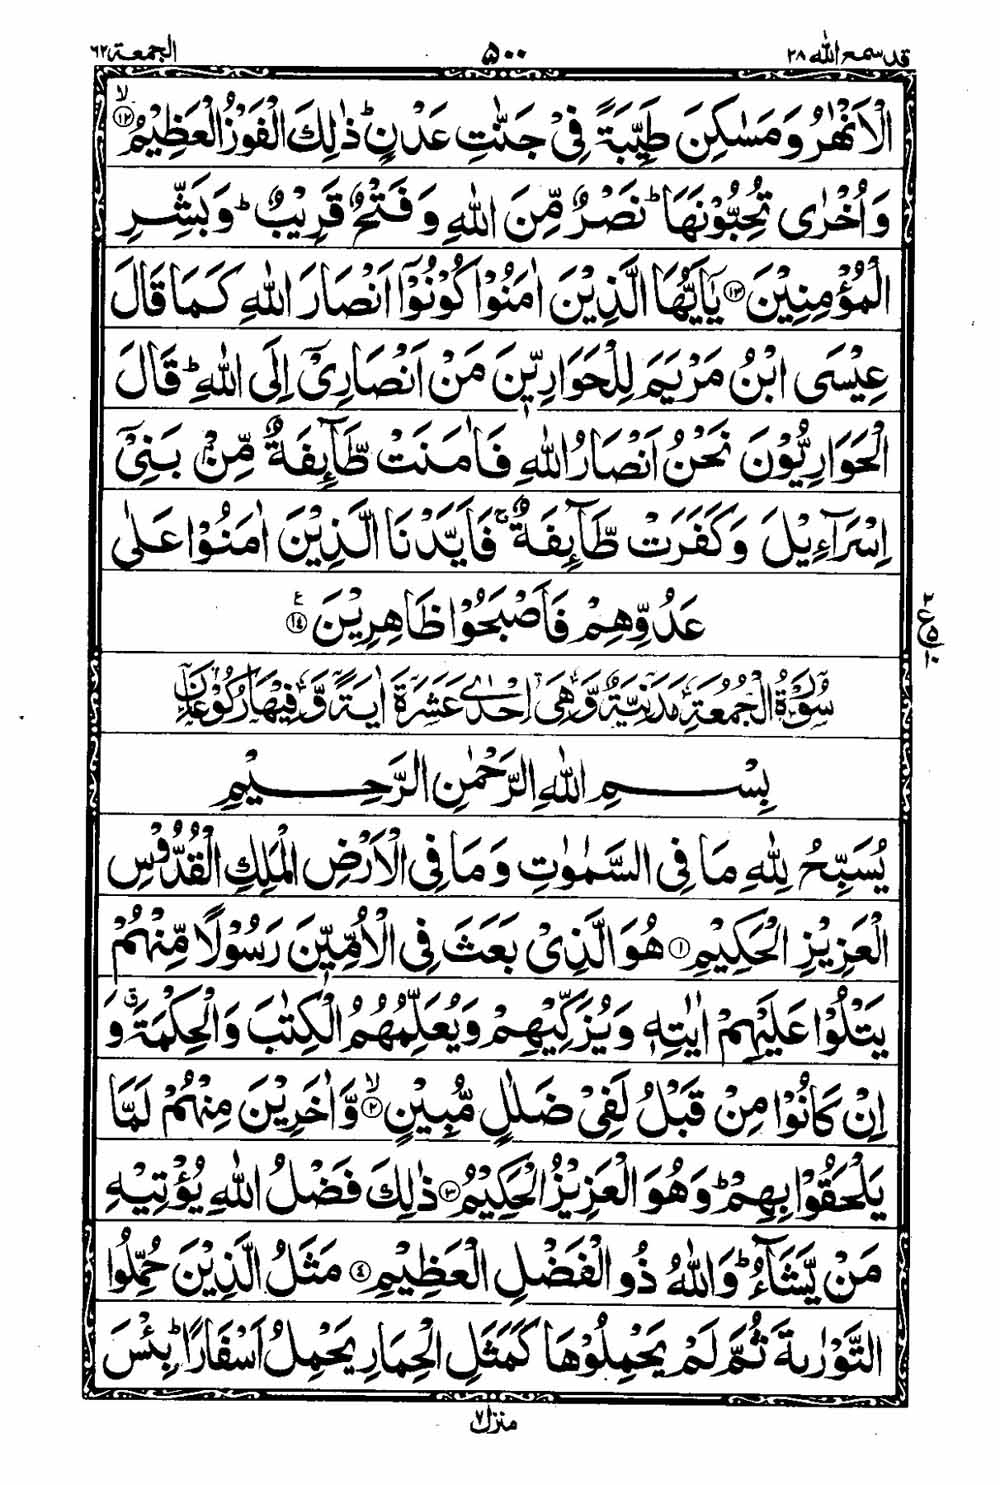 قد سمع الله ٢٨ ۵۰۰ الجمعة ٦٢
الْاَنْهٰرُ وَمَسٰكِنَ طَيِّبَةً فِيْ جَنّٰتِ عَدْنٍ ؕ ذٰلِكَ الْفَوْزُ الْعَظِيْمُ ۙ ﴿١٢﴾
وَاُخْرٰى تُحِبُّوْنَهَا ؕ نَصْرٌ مِّنَ اللّٰهِ وَفَتْحٌ قَرِيْبٌ ؕ وَبَشِّرِ
الْمُؤْمِنِيْنَ ﴿١٣﴾ يٰۤاَيُّهَا الَّذِيْنَ اٰمَنُوْا كُوْنُوْۤا اَنْصَارَ اللّٰهِ كَمَا قَالَ
عِيْسَى ابْنُ مَرْيَمَ لِلْحَوَارِيّٖنَ مَنْ اَنْصَارِيْۤ اِلَى اللّٰهِ ؕ قَالَ
الْحَوَارِيُّوْنَ نَحْنُ اَنْصَارُ اللّٰهِ فَاٰمَنَتْ طَّآئِفَةٌ مِّنْۢ بَنِيْۤ
اِسْرَآءِيْلَ وَكَفَرَتْ طَّآئِفَةٌ ۚ فَاَيَّدْنَا الَّذِيْنَ اٰمَنُوْا عَلٰى
عَدُوِّهِمْ فَاَصْبَحُوْا ظَاهِرِيْنَ ﴿١٤﴾ ع
٢
ع ٥
١٠
سُوْرَةُ الْجُمُعَةِ مَدَنِيَّةٌ وَّهِيَ اِحْدٰى عَشَرَةَ اٰيَةً وَّفِيْهَا رُكُوْعَانِ
بِسْمِ اللّٰهِ الرَّحْمٰنِ الرَّحِيْمِ
يُسَبِّحُ لِلّٰهِ مَا فِي السَّمٰوٰتِ وَمَا فِي الْاَرْضِ الْمَلِكِ الْقُدُّوْسِ
الْعَزِيْزِ الْحَكِيْمِ ﴿١﴾ هُوَ الَّذِيْ بَعَثَ فِي الْاُمِّيّٖنَ رَسُوْلًا مِّنْهُمْ
يَتْلُوْا عَلَيْهِمْ اٰيٰتِهٖ وَيُزَكِّيْهِمْ وَيُعَلِّمُهُمُ الْكِتٰبَ وَالْحِكْمَةَ ۗ وَ
اِنْ كَانُوْا مِنْ قَبْلُ لَفِيْ ضَلٰلٍ مُّبِيْنٍ ۙ ﴿٢﴾ وَّاٰخَرِيْنَ مِنْهُمْ لَمَّا
يَلْحَقُوْا بِهِمْ ؕ وَهُوَ الْعَزِيْزُ الْحَكِيْمُ ﴿٣﴾ ذٰلِكَ فَضْلُ اللّٰهِ يُؤْتِيْهِ
مَنْ يَّشَآءُ ؕ وَاللّٰهُ ذُو الْفَضْلِ الْعَظِيْمِ ﴿٤﴾ مَثَلُ الَّذِيْنَ حُمِّلُوا
التَّوْرٰىةَ ثُمَّ لَمْ يَحْمِلُوْهَا كَمَثَلِ الْحِمَارِ يَحْمِلُ اَسْفَارًا ؕ بِئْسَ
منزل ٧